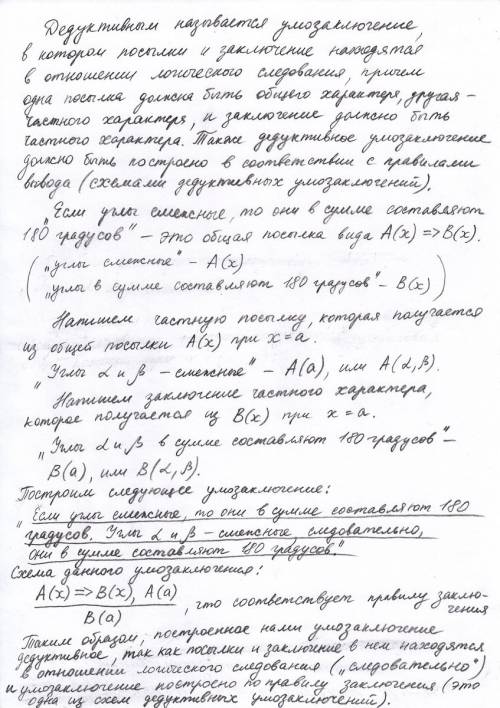 Дедуктивным называется умозаключение,
в котором посылки и заключение находятся
в отношении логического следования, причем
одна посылка должна быть общего характера, другая –
частного характера, и заключение должно быть
частного характера. Также дедуктивное умозаключение
должно быть построено в соответствии с правилами
вывода (схемами дедуктивных умозаключений).
„Если углы смежные, то они в сумме составляют
180 градусов" – это общая посылка вида A(x) => B(x).
(„углы смежные" – A(x)
„углы в сумме составляют 180 градусов" – B(x))
Напишем частную посылку, которая получается
из общей посылки A(x) при x = a.
„Углы α и β – смежные" – A(a), или A(α,β).
Напишем заключение частного характера,
которое получается из B(x) при x = a.
„Углы α и β в сумме составляют 180 градусов" –
B(a), или B(α,β).
Построим следующее умозаключение:
„Если углы смежные, то они в сумме составляют 180
градусов. Углы α и β – смежные, следовательно,
они в сумме составляют 180 градусов."
Схема данного умозаключения:
A(x) => B(x), A(a)
B(a) , что соответствует правилу заклю-
чения
Таким образом, построенное нами умозаключение
дедуктивное, так как посылки и заключение в нем находятся
в отношении логического следования („следовательно")
и умозаключение построено по правилу заключения (это
одна из схем дедуктивных умозаключений).